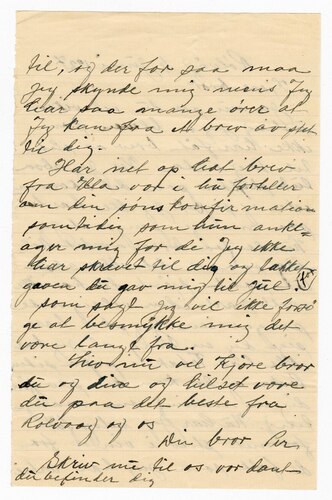 til, og der for saa maa
jeg skynde mig mens Jeg
har saa mange ører at
Jeg kan faa et brev av sted
til dig.
Har net op hat brev
fra Ida vor i hun fortæller
om din søns konfirmation
somtidig som hun ankl-
ager mig for de Jeg ikke
har skrevet til dig og takket
gaven du gav mig til Jul.
som sagt Jeg vil ikke forsø
ge at besmykke mig det
være langt fra.
Liv nu vel Kjære bror
du og dine og hilset være
du paa det beste fra
Rolvaag og os
Din bror Per.
Skriv nu til os vordant
du befinder dig